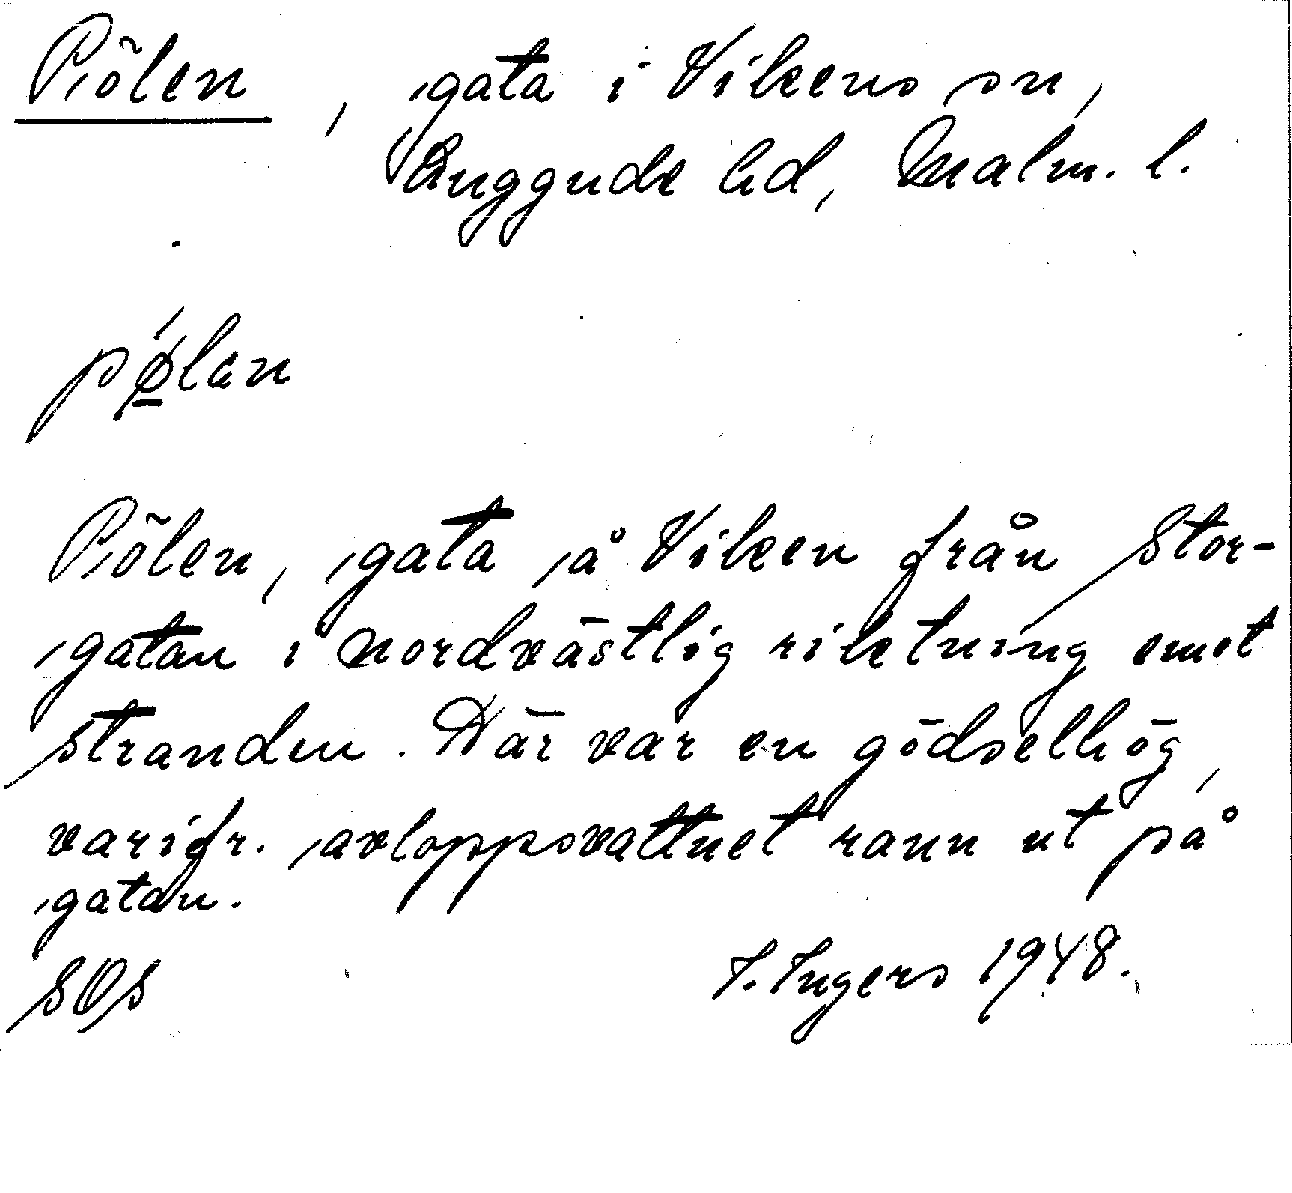 Pölen, gata i Vikens sn,
Luggude hd, Malm. l.
pǿ̲lən
Pölen, gata å Viken från Stor-
gatan i nordvästlig riktning emot
stranden. Där var en gödselhög,
varifr. avloppsvattnet rann ut på
gatan.
SOS I. Ingers 1948.